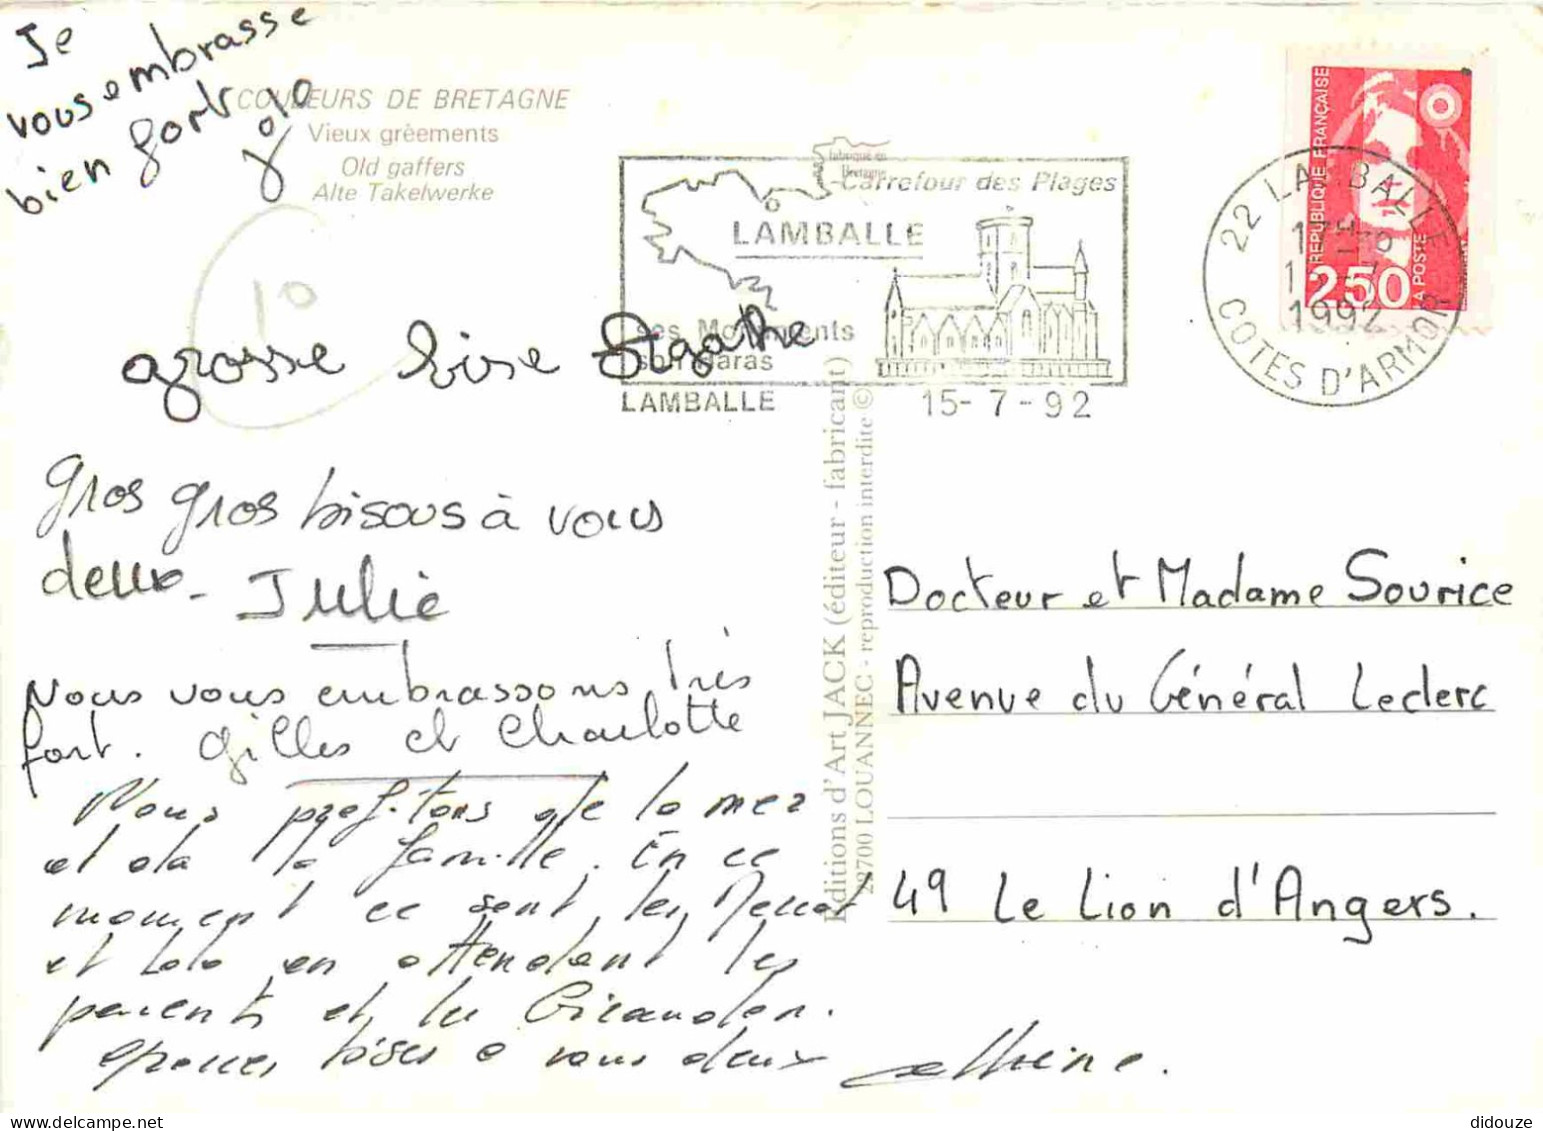 Je
vous embrasse
bien fort
Jo
COULEURS DE BRETAGNE
Vieux grèements
Old gaffers
Alte Takelwerke
fabriqué en
Bretagne
Carrefour des Plages
LAMBALLE
ses Monuments
son Haras
LAMBALLE
15-7-92
RÉPUBLIQUE FRANÇAISE
2,50
LA POSTE
22 LAMBALLE
1992
COTES D'ARMOR
10
grosse bise Agathe
Gros gros bisous à vous
deux. Julie
Nous vous embrassons très
fort. Gilles et Charlotte
Nous profitons de la mer
et de la famille. En ce
moment ce sont les
et Lolo en attendant les
parents et les
grosses bises à vous deux
Editions d'Art JACK (éditeur - fabricant)
22700 LOUANNEC - reproduction interdite ©
Docteur et Madame Sourice
Avenue du Général Leclerc
49 Le Lion d'Angers.
didouze